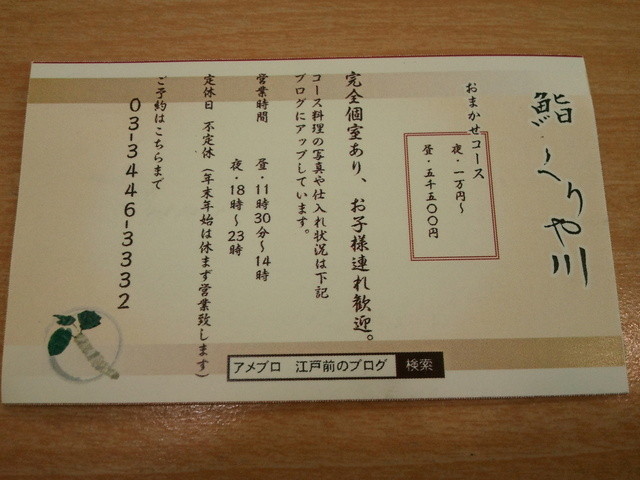 鮨 くりや川
おまかせコース
夜・一万円〜
昼・五千五〇〇円
完全個室あり、お子様連れ歓迎。
コース料理の写真や仕入れ状況は下記
ブログにアップしています。
営業時間 昼・11時30分〜14時
夜・18時〜23時
定休日 不定休（年末年始は休まず営業致します）
ご予約はこちらまで
03-3446-3332
アメブロ 江戸前のブログ 検索